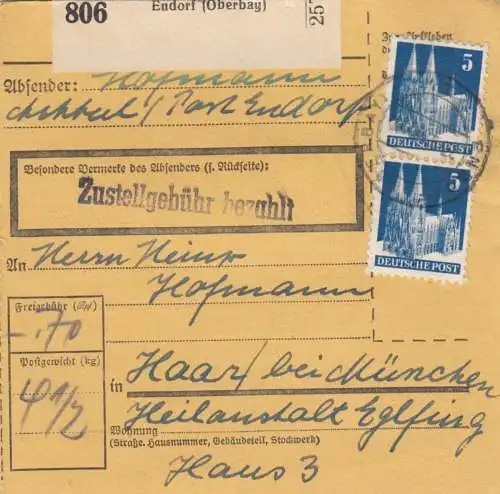 806
Endorf (Oberbay)
257
Absender: Hofmann
/ Post Endorf
Besondere Vermerke des Absenders (s. Rückseite):
Zustellgebühr bezahlt
5
DEUTSCHE POST
5
DEUTSCHE POST
An Herrn Heinr
Hofmann
Freigebühr
-.70
Postgewicht (kg)
4 1/2
in Haar/bei München
Heilanstalt Eglfing
Wohnung
(Straße, Hausnummer, Gebäudeteil, Stockwerk)
Haus 3